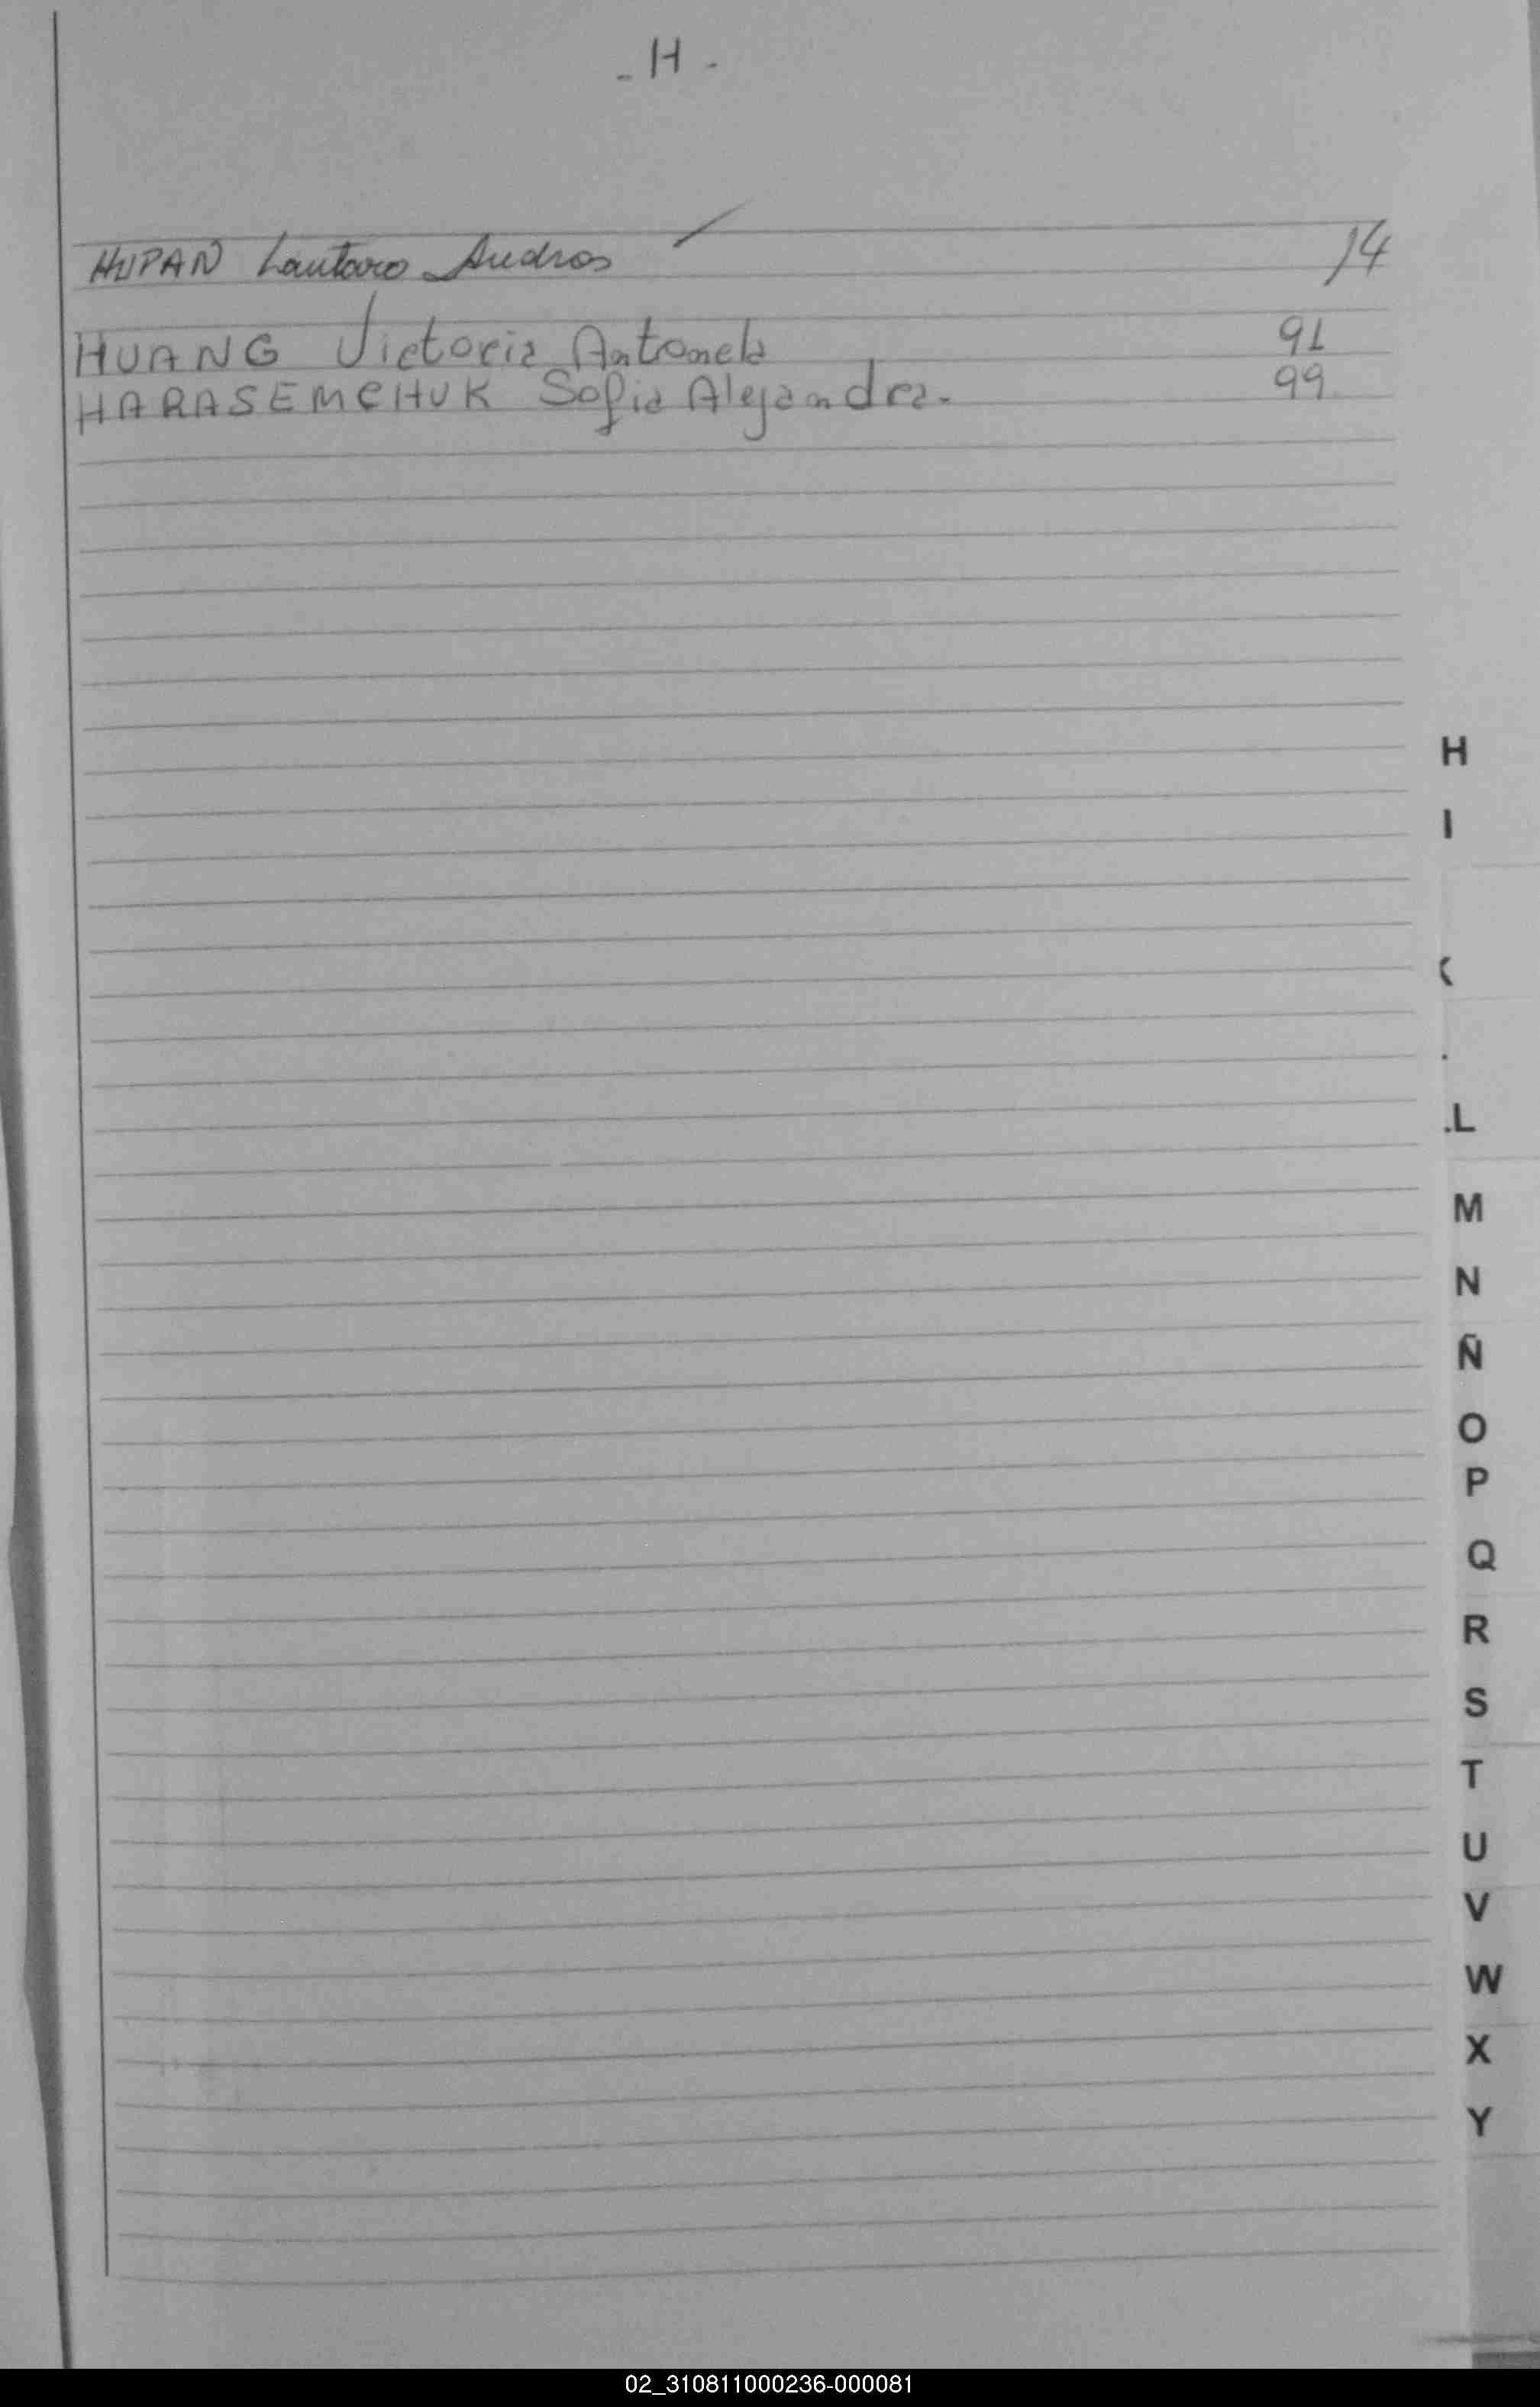 - H -
HUPAN Lautaro Andros 14
HUANG Victoria Antonela 91
HARASEMCHUK Sofia Alejandra. 99
H
I
K
L
M
N
Ñ
O
P
Q
R
S
T
U
V
W
X
Y
02_310811000236-000081